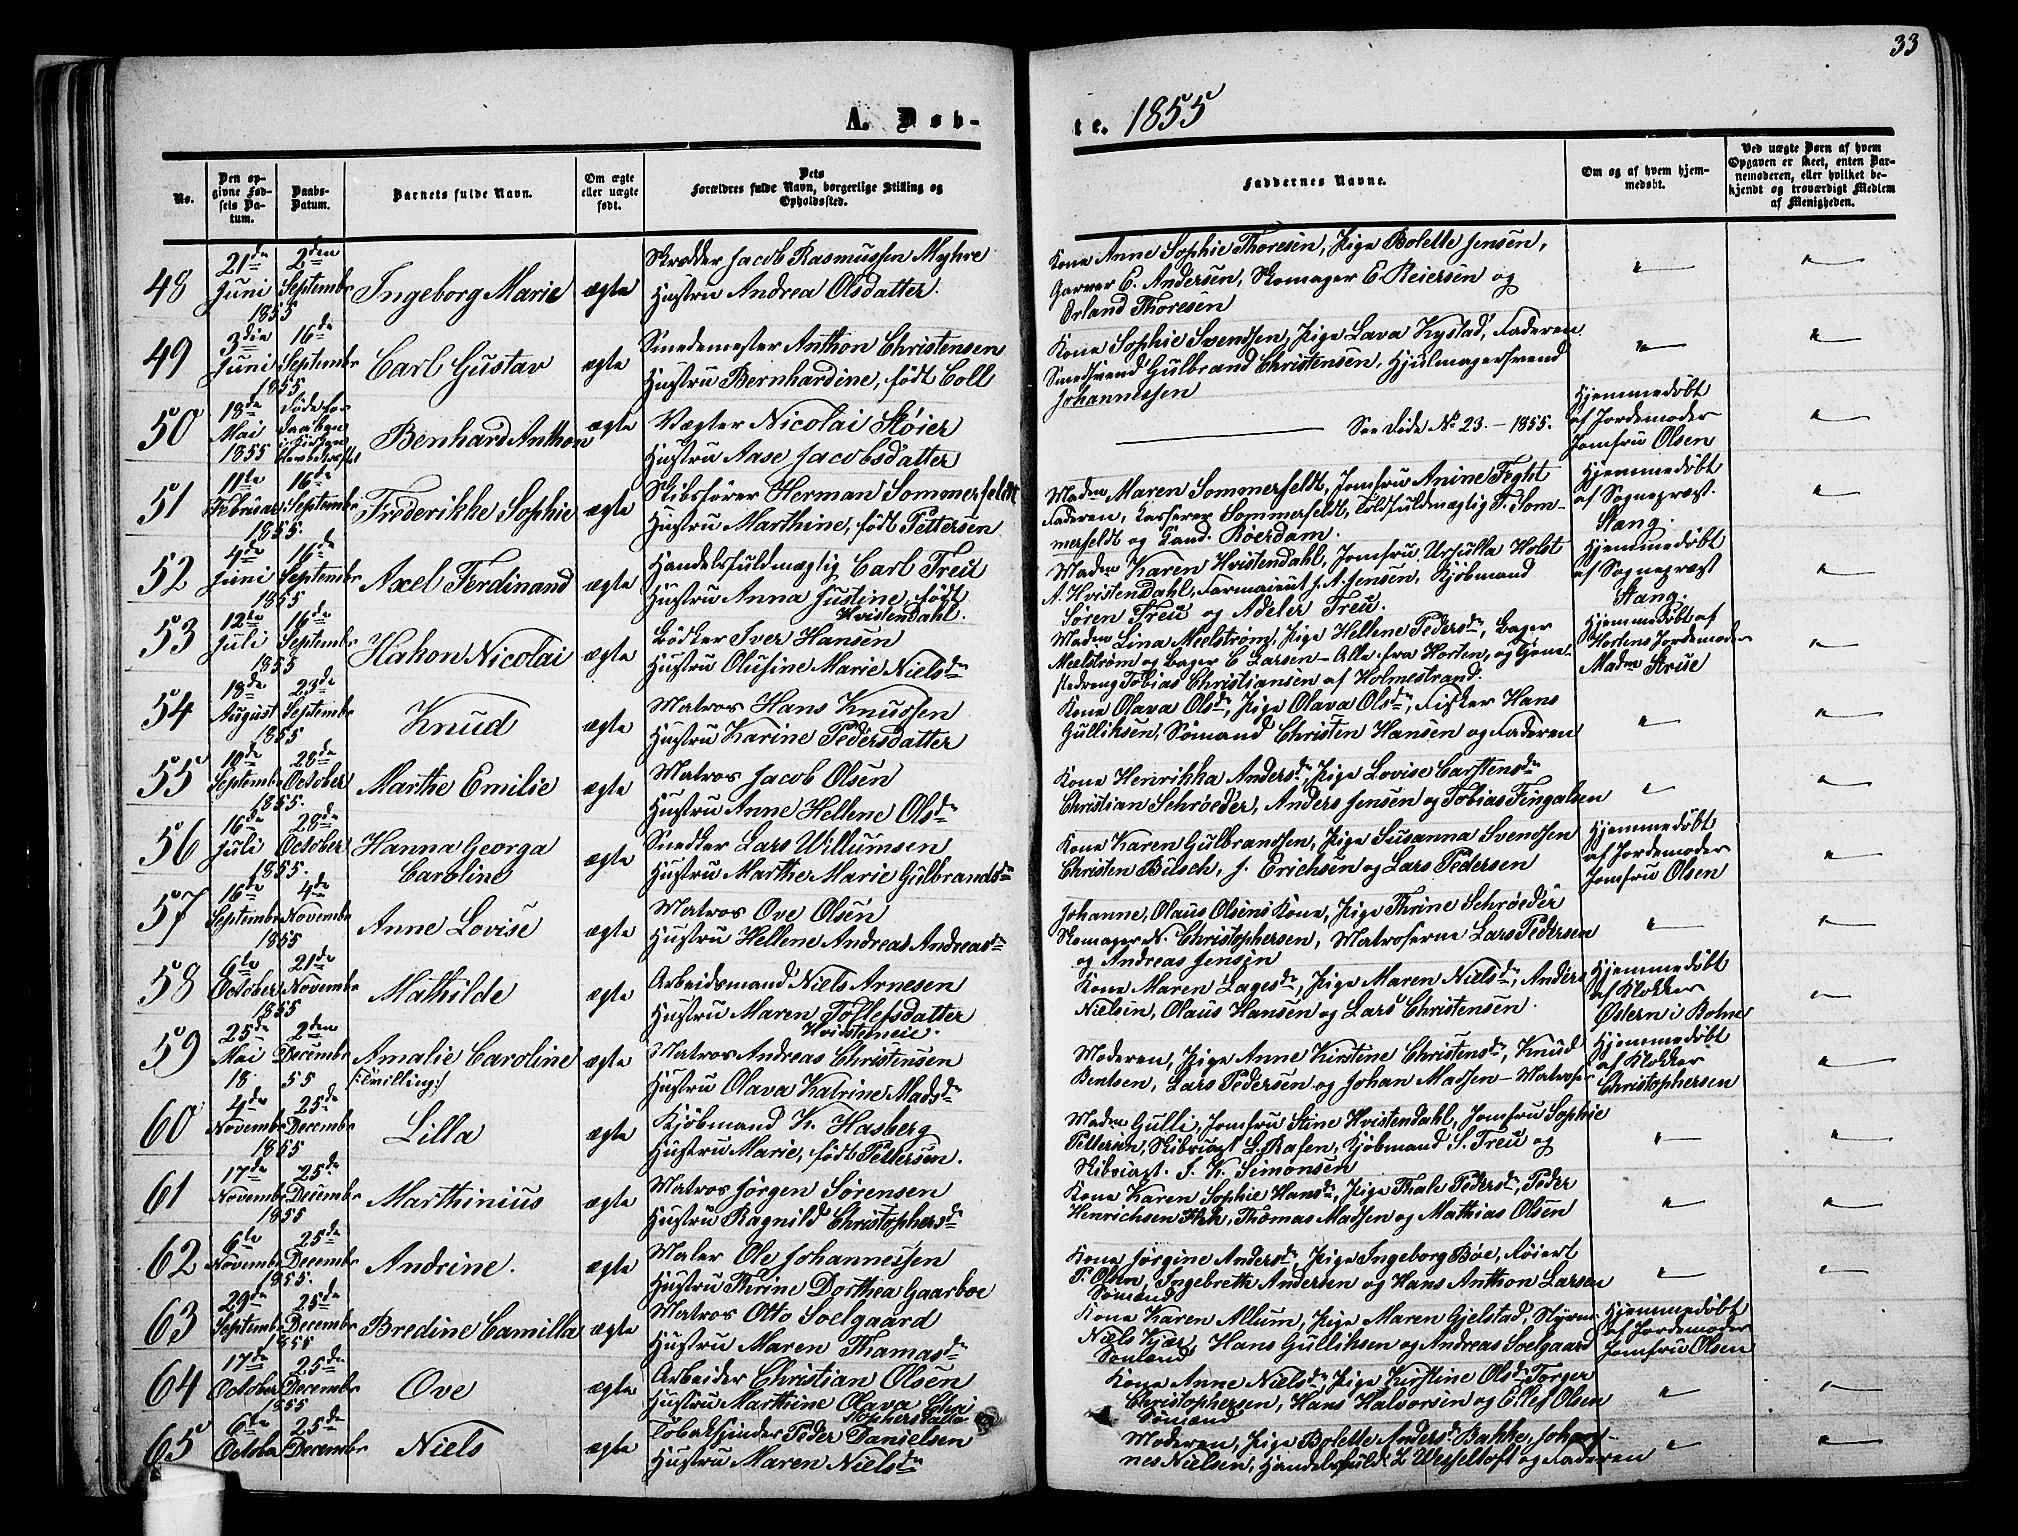 33
A. Døb-
te. 1855
No.
Den op-
givne Fød-
sels Da-
tum.
Daabs-
Datum.
Barnets fulde Navn.
Om ægte
eller uægte
født.
Dets
Forældres fulde Navn, borgerlige Stilling og
Opholdssted.
Faddernes Navne.
Om og af hvem hjem-
medøbt.
Ved uægte Børn af hvem
Opgaven er skeet, enten Bar-
nemoderen, eller hvilket be-
kjendt og troværdigt Medlem
af Menigheden.
48
21de Juni 1855
2den Septembr
Ingeborg Marie
ægte
Skrædder Jacob Rasmussen Myhre
Hustru Andrea Olsdatter.
Kone Anne Sophie Thoresen, Pige Bolette Jensen,
Garver E. Andersen, Skomager E. Reiersen og
Erland Thoresen
49
3die Juni 1855
16de Septembr
Carl Gustav
ægte
Smedemester Anthon Christensen
Hustru Bernhardine, født Coll
Kone Sophie Svendsen, Pige Lava Kystad, Faderen
Smedsvend Gulbrand Christensen, Hjulmagersvend
Johannessen
50
18de Mai 1855
Døde før Daaben i Kirken
Benhard Anthon
ægte
Vægter Nicolai Støier
Hustru Aase Jacobsdatter
See Døde No 23. - 1855.
Hjemmedøbt
af Jordemoder
Jomfru Olsen
51
11te Februar 1855.
16de Septembr
Frederikke Sophie
ægte
Skibsfører Herman Sommerfeldt
Hustru Marthine, født Pettersen
Madm Maren Sommerfeldt, Jomfru Anine Feght
Faderen, Kasserer Sommerfeldt, Toldfuldmægtig F. Som-
merfeldt og Cand. Røerdam.
Hjemmedøbt
af Sognepræst.
Stang.
52
4de Juni 1855
16de Septembr
Axel Ferdinand
ægte
Handelsfuldmægtig Carl Treu
Hustru Anna Justine, født
Hvistendahl.
Madm Karen Hvistendahl, Jomfru Ursulla Holst
A. Hvistendahl, Farmaceut J. A. Jensen, Kjøbmand
Søren Treu og Adeler Treu.
Hjemmedøbt
af Sognepræst
Stang.
53
12te Juli 1855
16de Septembr
Hakon Nicolai
ægte
Bødker Iver Hansen
Hustru Olufine Marie Nielsdr
Madm Lina Meelstrøm, Pige Hellene Pedersdr, Bager
Meelstrøm og Bager E Larsen - Alle fra Horten, og Tjene-
stedreng Tobias Christiansen af Holmestrand.
Hjemmedøbt af
Hortens Jordemoder
Madm Strue
54
18de August 1855
23de Septembr
Knud
ægte
Matros Hans Knudsen
Hustru Karine Pedersdatter
Kone Olava Olsdr, Pige Olava Olsdr, Fisker Hans
Gulliksen, Sømand Christen Hansen og Faderen
55
10de Septembr 1855.
28de October
Marthe Emilie
ægte
Matros Jacob Olsen
Hustru Anne Hellene Olsdr
Kone Henrikka Andersdr, Pige Lovise Carstensdr
Christian Schrøeder, Anders Jensen og Tobias Fingalsen
56
16de Juli 1855.
28de October
Hanna Georga
Caroline
ægte
Snedker Lars Willumsen
Hustru Marthe Marie Gulbrandsdr
Kone Karen Gulbrandsen, Pige Susanna Svendsen
Christen Büsch, J. Erichsen og Lars Pedersen
Hjemmedøbt
af Jordemoder
Jomfru Olsen
57
16de Septembr 1855
4de Novembr
Anne Lovise
ægte
Matros Ove Olsen
Hustru Hellene Andreas Andreasdr
Johanne, Olaus Olsens Kone, Pige Thrine Schrøeder
Skomager N. Christophersen, Matroserne Lars Pedersen
og Andreas Jensen
58
6te October 1855
21de Novembr
Mathilde
ægte
Arbeidsmand Niels Arnesen
Hustru Maren Tollefsdatter
Hvisteneie.
Kone Maren Lagesdr, Pige Maren Nielsdr, Anders
Nielsen, Olaus Hansen og Lars Christensen.
Hjemmedøbt
af Klokker
Østern i Botne
59
25de Mai 18
2den Decembr 55
Amalie Caroline
/:Tvilling:/
ægte
Matros Andreas Christensen
Hustru Olava Katrine Madsdr
Moderen, Pige Anne Kirstine Christensdr, Knud
Bentsen, Lars Pedersen og Johan Madsen - Matroser
Hjemmedøbt
af Klokker
Christophersen
60
4de Novembr 1855
25de Decembr
Lilla
ægte
Kjøbmand K. Hasberg
Hustru Marie, født Pettersen.
Madm Gulli, Jomfru Stine Hvistendahl, Jomfru Sophie
Pettersen, Skibsrgt L. Rafen, Kjøbmand S. Treu og
Skibsrgt. J. K. Simonsen
61
17de Novembr 1855
25de Decembr
Marthinius
ægte
Matros Jørgen Sørensen
Hustru Ragnild Christophersdr
Kone Karen Sophie Hansdr, Pige Thale Pedersdr, Peder
Henrichsen, Thomas Madsen og Mathias Olsen
62
6te Novembr 1855.
25de Decembr
Andrine.
ægte
Maler Ole Johannessen
Hustru Thrine Dorthea Gaarboe
Kone Jørgine Andersdr, Pige Ingeborg Bøe, Føiert
P. Olsen, Ingebreth Andersen og Hans Anthon Larsen
Sømænd
63
29de Septembr 1855
25de Decembr
Bredine Camilla
ægte
Matros Otto Soelgaard
Hustru Maren Thamasdr
Kone Karen Allum, Pige Maren Gjelstad, Styrm.
Niels Kjær, Hans Gulliksen og Andreas Soelgaard
Sømænd
Hjemmedøbt
af Jordemoder
Jomfru Olsen
64
17de October 1855
25de Decembr
Ove
ægte
Arbeider Christian Olsen
Hustru Marthine Olava Chri
stophersdatter
Kone Anne Nielsdr, Pige Kirstine Olsdr, Torger
Christophersen, Hans Halvorsen og Ellef Olsen
Sømænd
65
6te October
25de Decembr
Niels
ægte
Tobakspinder Peder Danielsen
Hustru Maren Nielsdr
Moderen, Pige Bolette Andersdr Bakke, Johan-
nes Nielsen, Handelsfuld. L Wesseltoft og Faderen